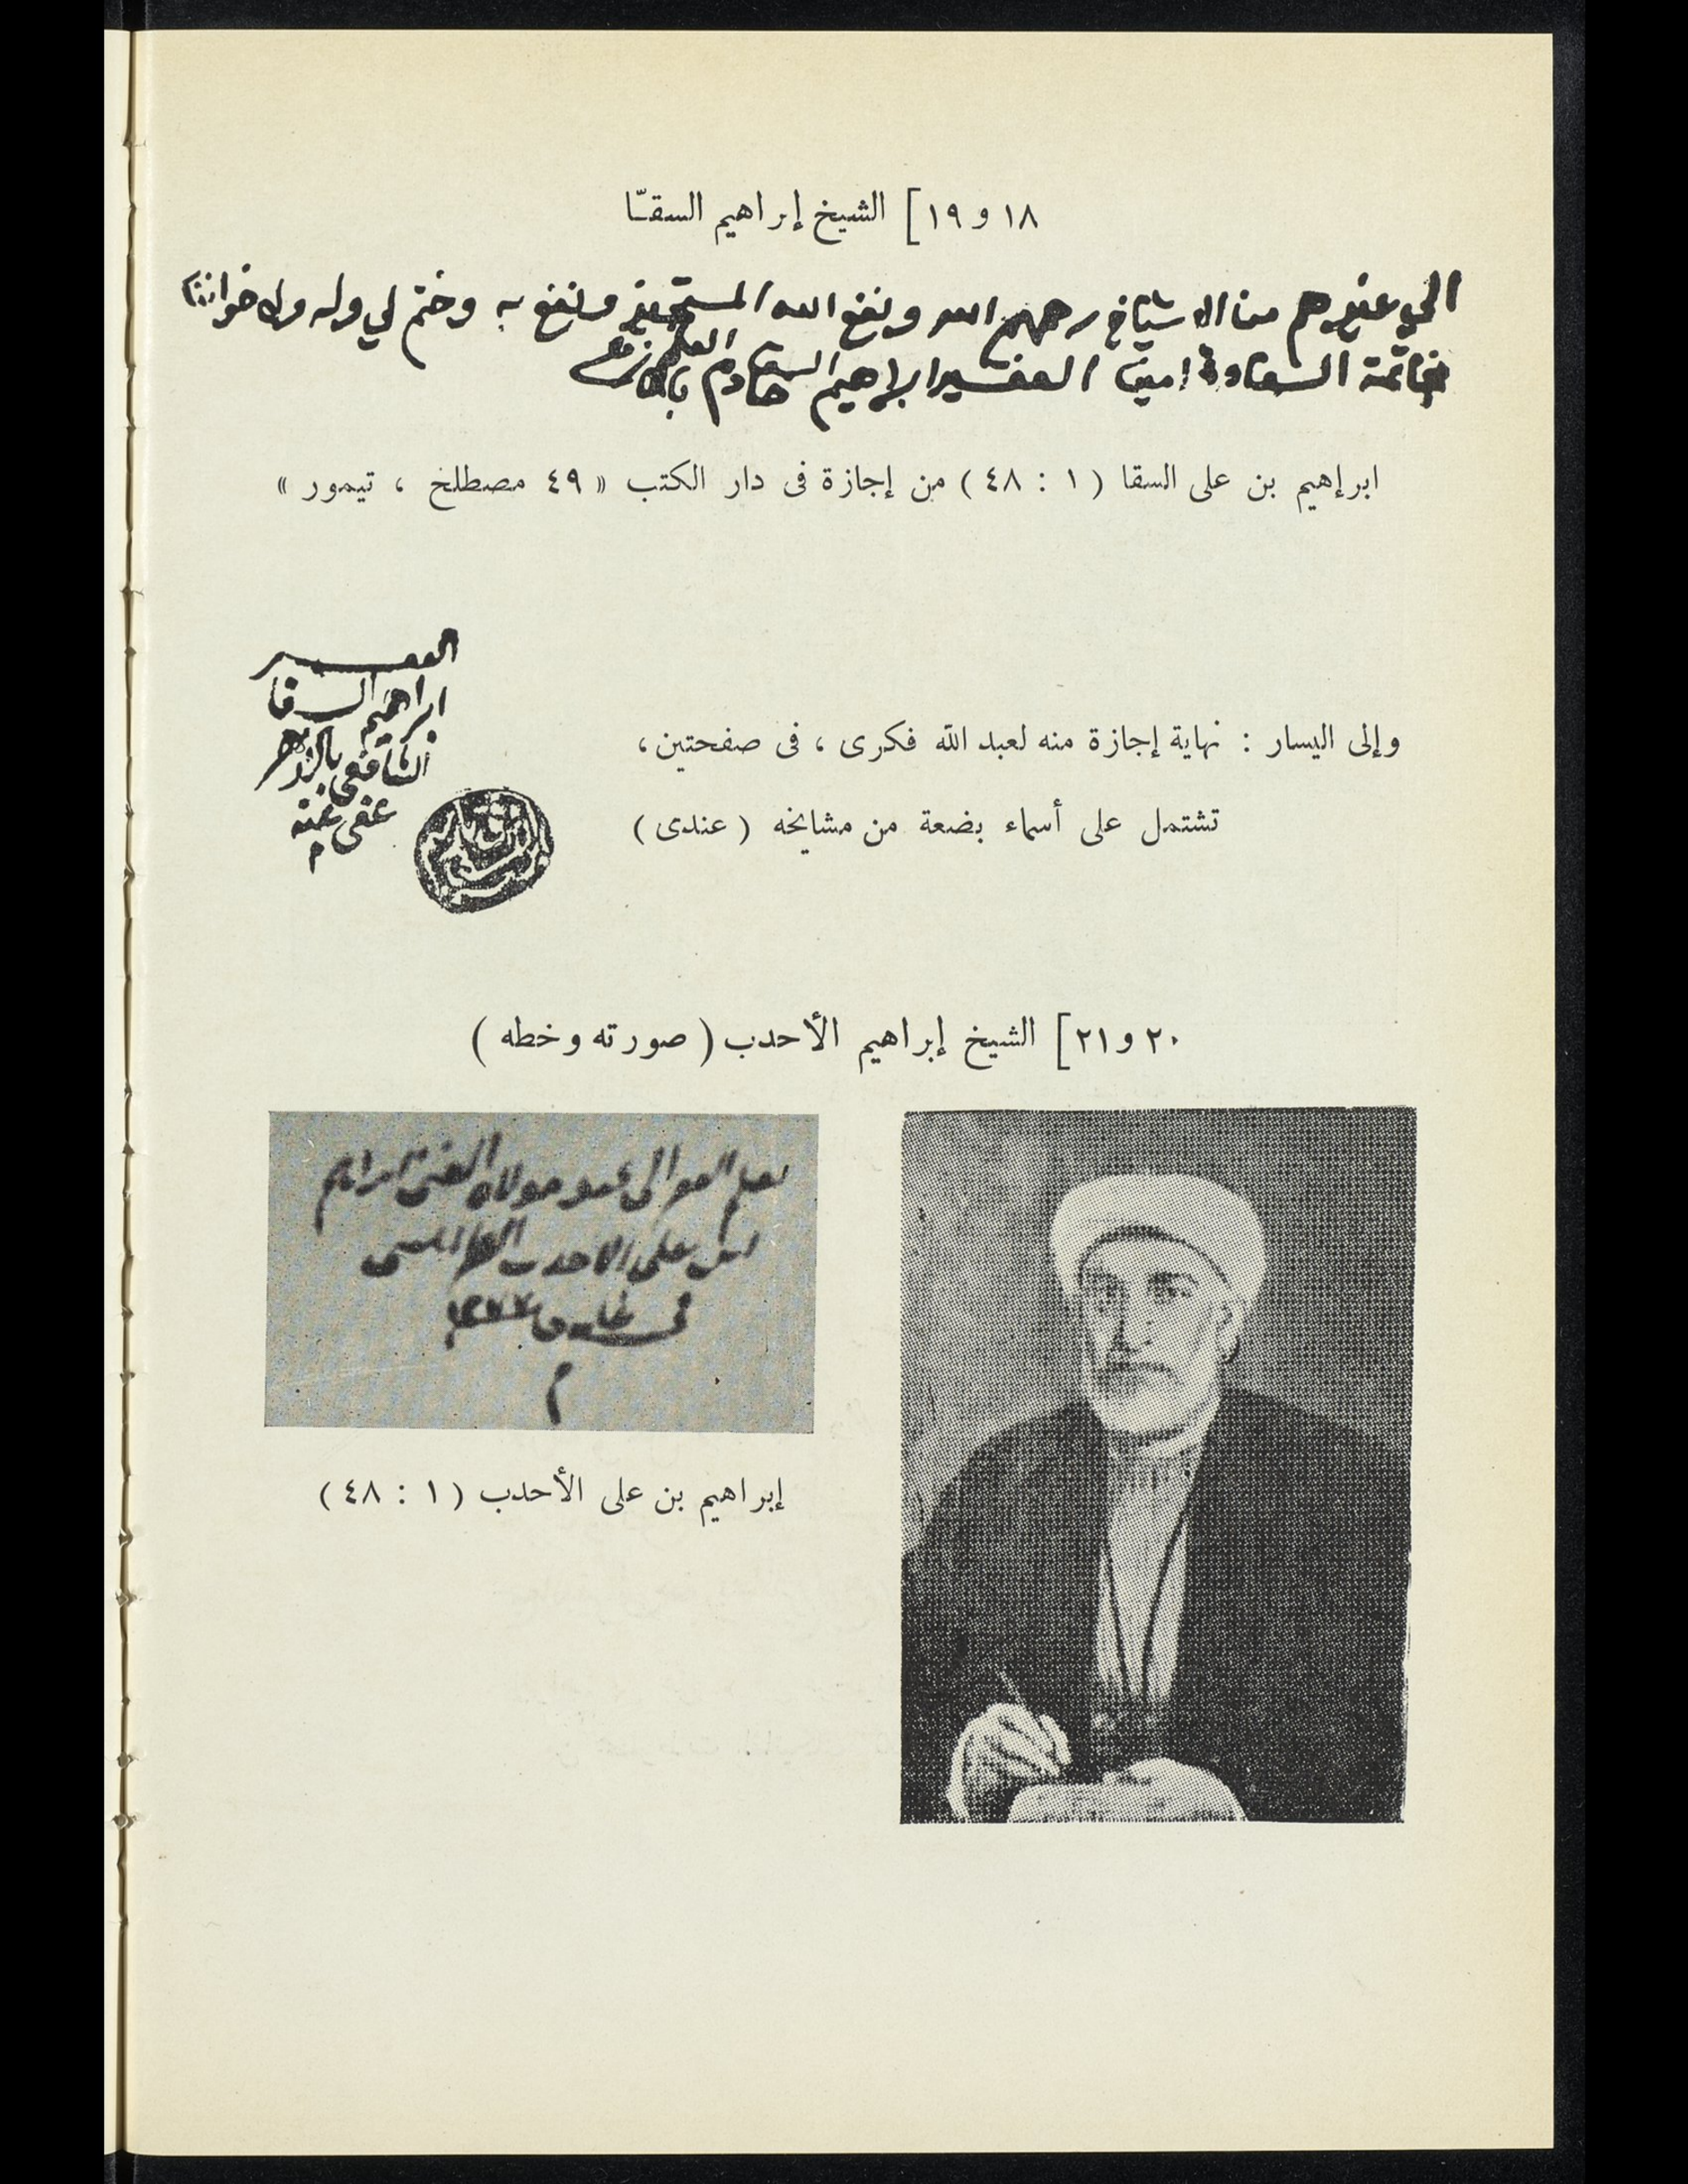 ١٨ و ١٩ ] الشيخ إبراهيم السقّا
الى غيرهم من الاشياخ رحمهم الله ونفع الله المستجيز ونفع به وختم لي وله ولاخواننا
خاتمة السعادة امين الفقير ابراهيم السقا خادم العلم بالازهر
ابرإهيم بن على السقا ( ١ : ٤٨ ) من إجازة فى دار الكتب « ٤٩ مصطلخ ، تيمور »
الفقير
ابراهيم السقا
الشافعي بالازهر
عفى عنه
م
وإلى اليسار : نهاية إجازة منه لعبد الله فكرى ، فى صفحتين ،
تشتمل على أسماء بضعة من مشايخه ( عندى )
٢٠ و ٢١ ] الشيخ إبراهيم الأحدب ( صورته وخطه )
عبد مولاه الغني ابراهيم
على الاحدب الطرابلسي
في
م
إبراهيم بن على الأحدب ( ١ : ٤٨ )